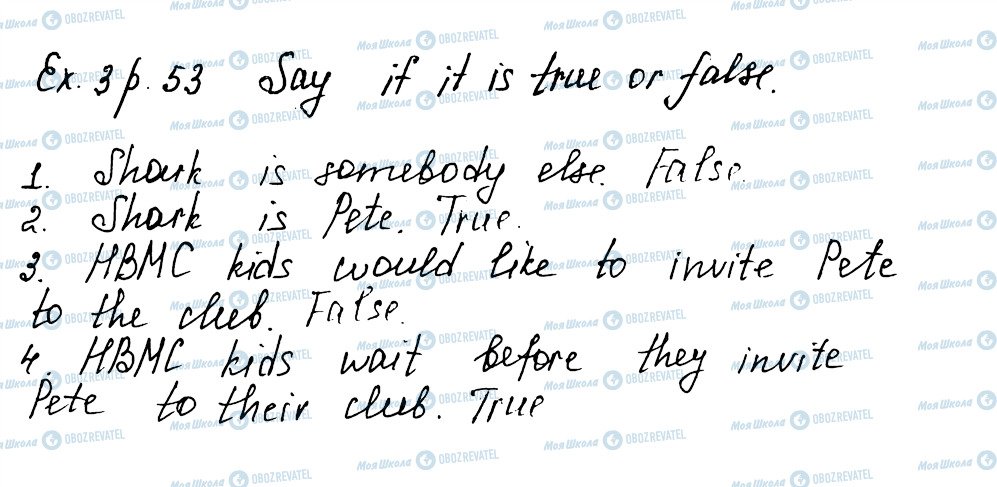 Ex. 3 p. 53 Say if it is true or false.
1. Shark is somebody else. False.
2. Shark is Pete. True.
3. HBMC kids would like to invite Pete
to the club. False.
4. HBMC kids wait before they invite
Pete to their club. True